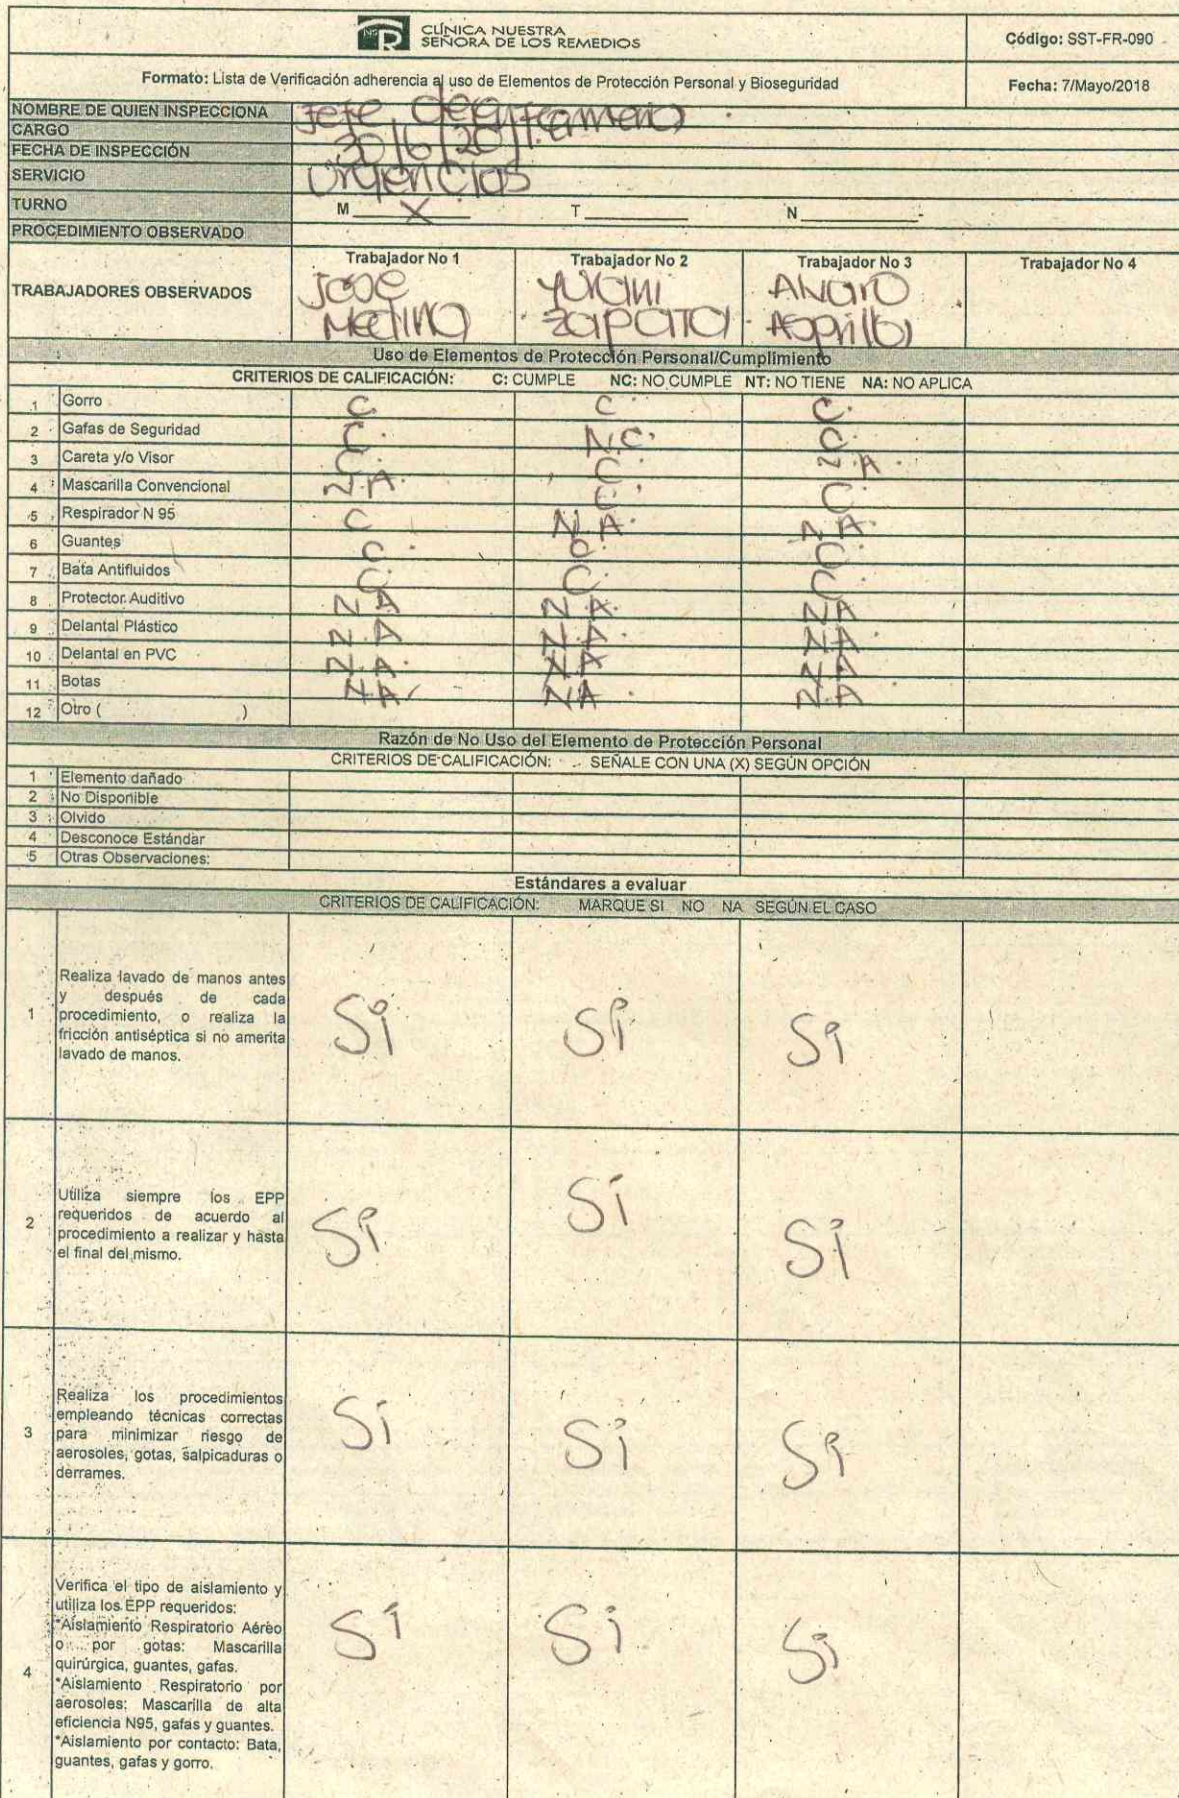 CLÍNICA NUESTRA
SEÑORA DE LOS REMEDIOS
Código: SST-FR-090
Formato: Lista de Verificación adherencia al uso de Elementos de Protección Personal y Bioseguridad
Fecha: 7/Mayo/2018
NOMBRE DE QUIEN INSPECCIONA
CARGO Jefe de
FECHA DE INSPECCIÓN 30/6/20
SERVICIO Urgencias
TURNO M X T N
PROCEDIMIENTO OBSERVADO
TRABAJADORES OBSERVADOS
Trabajador No 1 Trabajador No 2 Trabajador No 3 Trabajador No 4
Jose Yurani Alvaro
Medina Zapata Asprilla
Uso de Elementos de Protección Personal/Cumplimiento
CRITERIOS DE CALIFICACIÓN: C: CUMPLE NC: NO CUMPLE NT: NO TIENE NA: NO APLICA
1 Gorro C C. C.
2 Gafas de Seguridad C. N.C. C.
3 Careta y/o Visor C. C. N.A.
4 Mascarilla Convencional N.A. C. C.
5 Respirador N 95 C N.A. N.A.
6 Guantes C. C. C.
7 Bata Antifluidos C. C. C.
8 Protector Auditivo N A N A. NA
9 Delantal Plástico N.A N.A. NA
10 Delantal en PVC N.A. N.A N.A
11 Botas N.A NA N.A
12 Otro ( )
Razón de No Uso del Elemento de Protección Personal
CRITERIOS DE CALIFICACIÓN: SEÑALE CON UNA (X) SEGÚN OPCIÓN
1 Elemento dañado
2 No Disponible
3 Olvido
4 Desconoce Estándar
5 Otras Observaciones:
Estándares a evaluar
CRITERIOS DE CALIFICACIÓN: MARQUE SI NO NA SEGÚN EL CASO
1
Realiza lavado de manos antes
y después de cada
procedimiento, o realiza la
fricción antiséptica si no amerita
lavado de manos.
Si Si Si
2
Utiliza siempre los EPP
requeridos de acuerdo al
procedimiento a realizar y hasta
el final del mismo.
Si Si Si
3
Realiza los procedimientos
empleando técnicas correctas
para minimizar riesgo de
aerosoles, gotas, salpicaduras o
derrames.
Si Si Si
4
Verifica el tipo de aislamiento y
utiliza los EPP requeridos:
*Aislamiento Respiratorio Aéreo
o por gotas: Mascarilla
quirúrgica, guantes, gafas.
*Aislamiento Respiratorio por
aerosoles: Mascarilla de alta
eficiencia N95, gafas y guantes.
*Aislamiento por contacto: Bata,
guantes, gafas y gorro.
Si Si Si